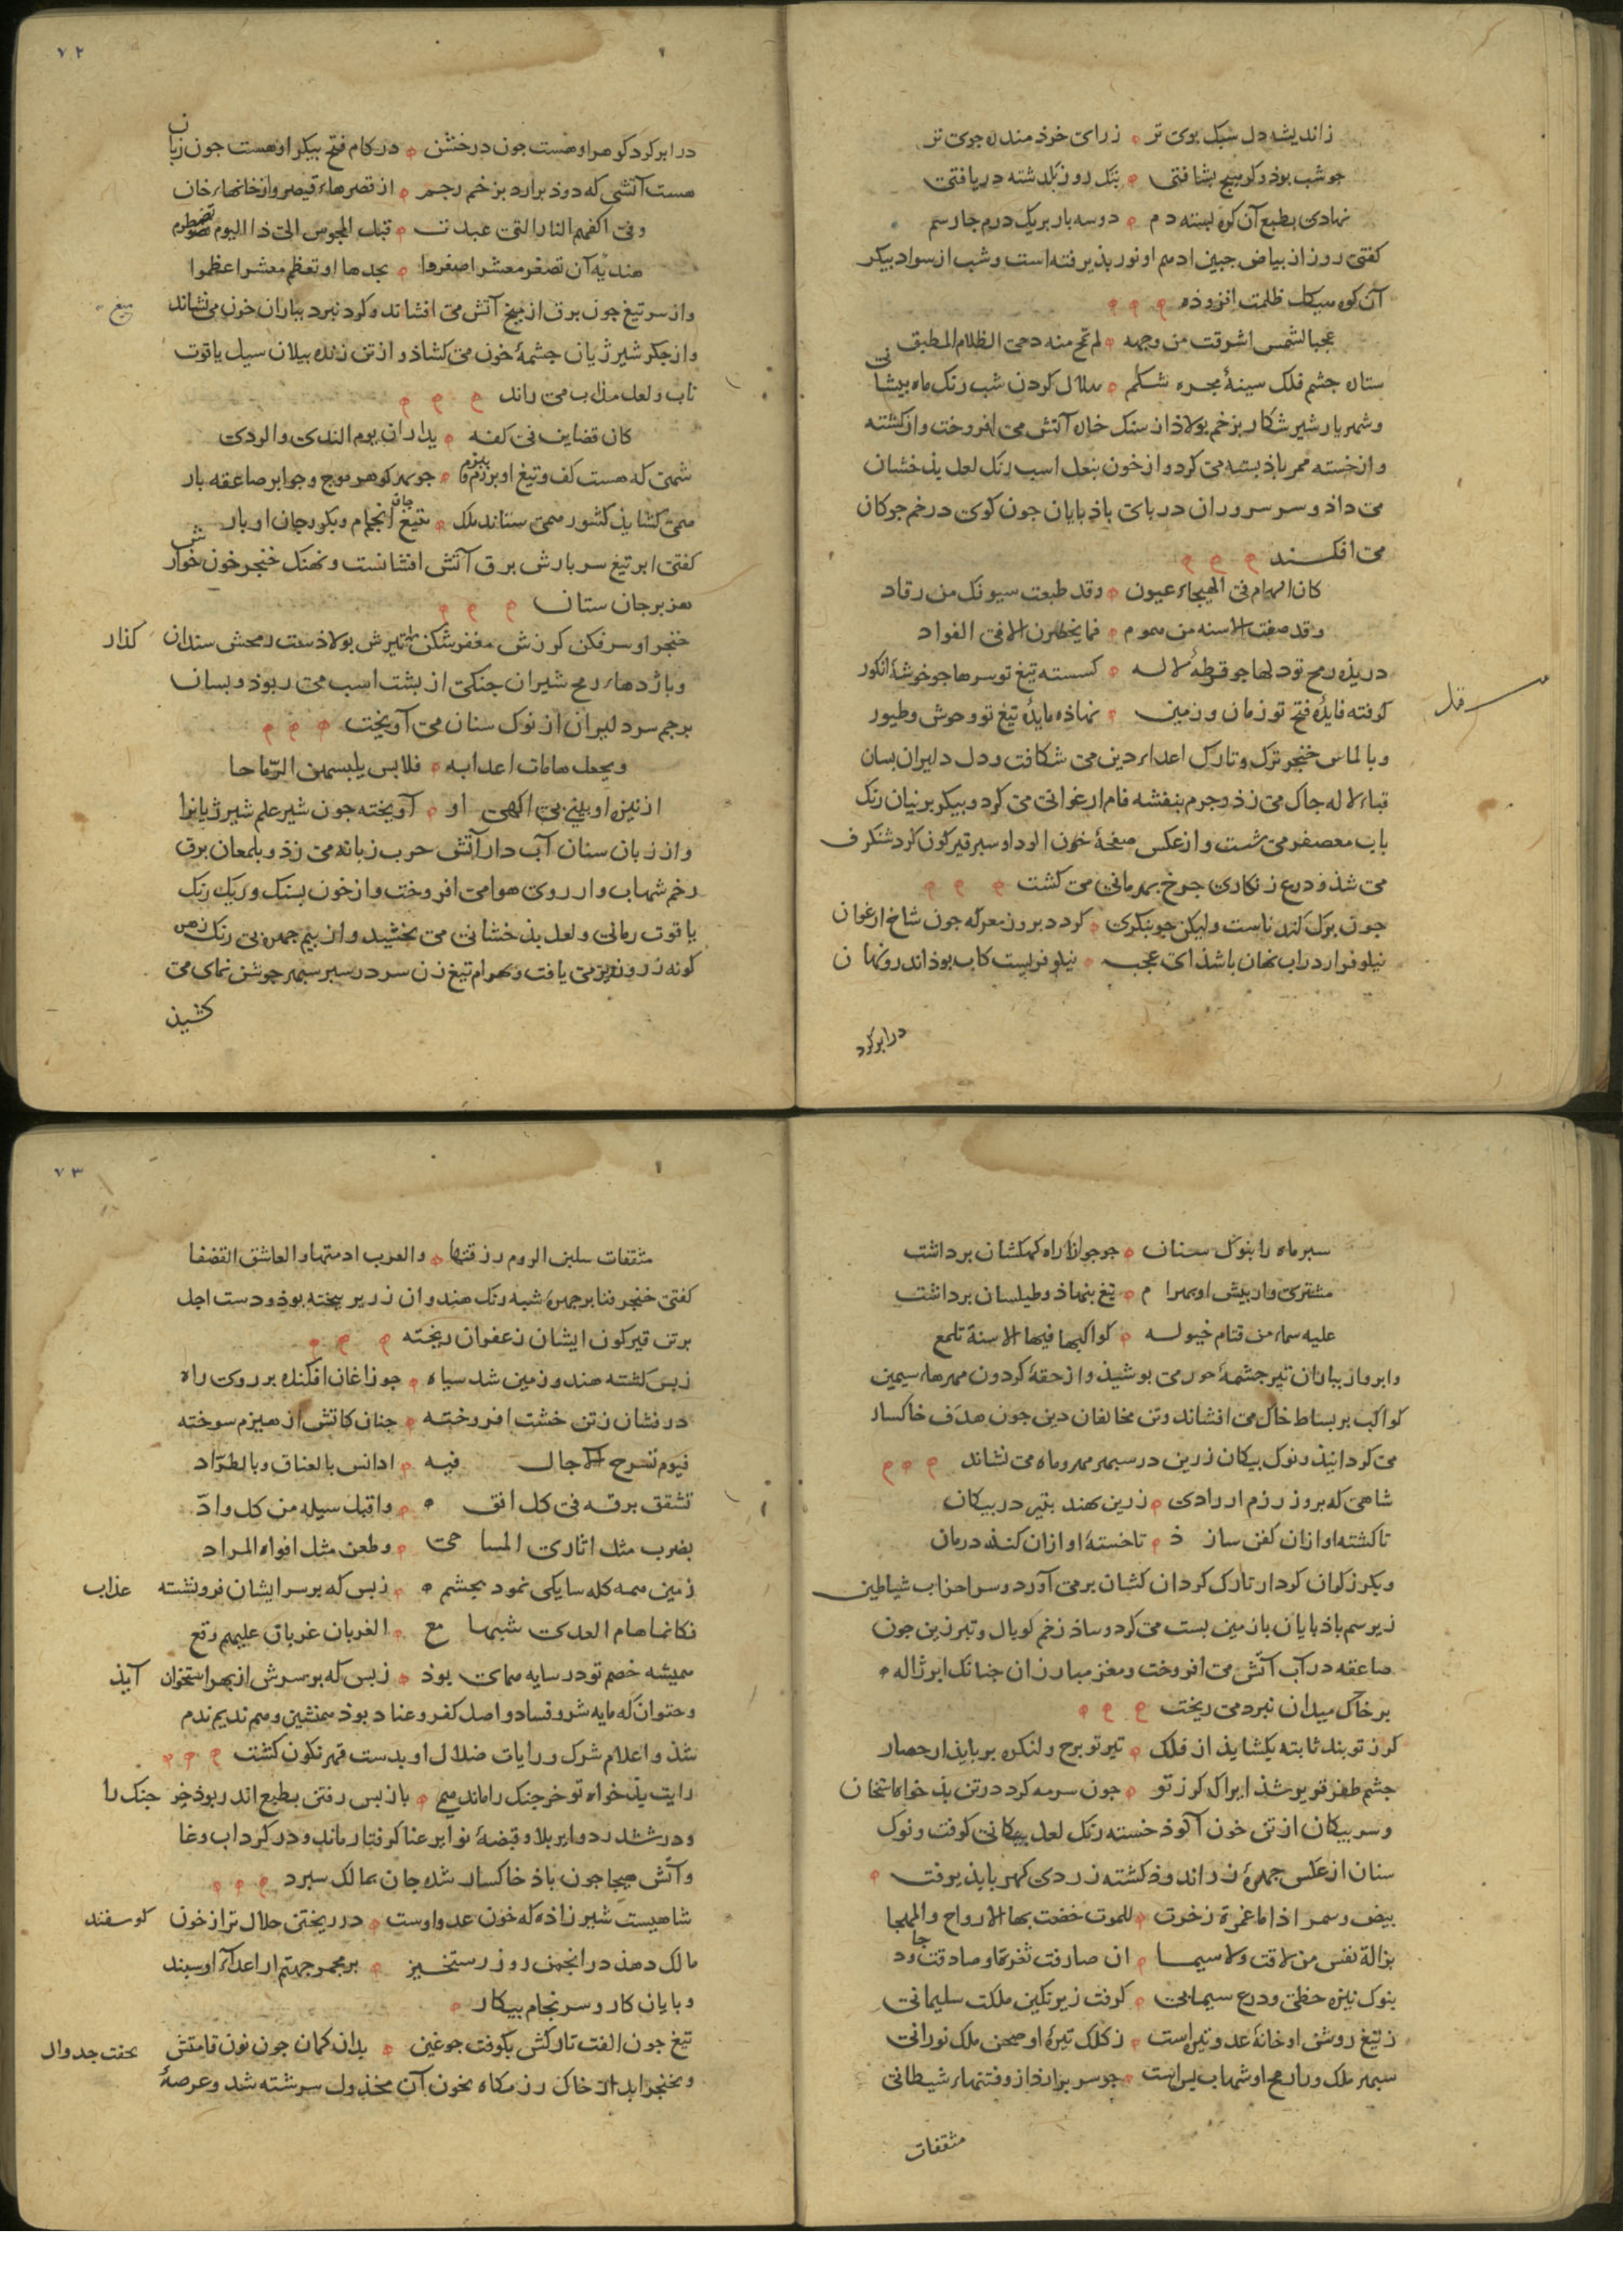 ز اندیشه دل سبک بوی تر ه ز رای خرد مندان جوی تر
جو شب بوذ و کر بسیج بشتافتی ه بتک روز بگذشته دریافتی
نهادی بطبع آن کره بسته دم ه دو سه بار بر یک درم جار سم
کفتی روز از بیاض جبین ادهم او نور بذیرفته است و شب از سواد بیکر
آن کوه هیکل ظلمت افزوذه
عجبا لشمس اشرقت من وجهه ه لم تمح منه دجی الظلام المطبق
ستاره جشم فلک سینهٔ مجره شکم ه هلال کردن شب رنک ماه بیشانی
و شهریار شیر شکار بزخم بولاذ از سنک خاره آتش می افروخت و از کشته
و از خسته ممر باذ بسته می کرد و از خون بنعل اسب رنک لعل بذخشان
می داذ و سر سروران در بای باذ بایان جون کوی در خم جوکان
می افکند
کان الهام فی الهیجاء عیون ه وقد طبعت سیوفک من رقاد
وقد صغت الاسنه من هموم ه فما یخطرن الا فی الفواد
دریده رمح تو دلها جو قرطهٔ لاله ه کسسته تیغ تو سرها جو خوشهٔ انکور
کوفته فایدهٔ فتح تو زمان و زمین نهاذه مایدهٔ تیغ تو وحوش و طیور
و بالماس خنجر ترک و تارک اعداء دین می شکافت و دل دلیران بسان
قباء لاله جاک می زذ و جرم بنفشه فام ارغوانی می کرد و بیکر برنیان رنک
باب معصفر می شست و از عکس صفحهٔ خون الود او سبر قیرکون کرد شنکرف
می شذ و درع زنکاری جرخ بهرمانی می کشت
جون برک کندناست ولیکن جو بنکری ه کردد بروز معرکه جون شاخ ارغوان
نیلوفر ار در اب نهان باشذ ای عجب ه نیلوفریست کاب بوذ اندرو نهان
در ابر کرد
۷۲
در ابر کرد کوهر او هست جون درخشن ه در کام فتح بیکر او هست جون زبان
هست آتشی که دوذ برارد بزخم رجم ه از قصرهاء قیصر و از خانهاء خان
وفی اکفهم النار التی عبدت ه قبل المجوس الی ذا الیوم تضطرم
هندیه آن تصغر معشرا صغروا ه بحدها او تعظم معشرا عظموا
و از سر تیغ جون برق از میخ آتش می افشاند و کرد نبرد بباران خون می نشاند
میغ
و از جکر شیر ژیان جشمهٔ خون می کشاذ و از تن زنده بیلان سیل یاقوت
ناب و لعل مذاب می راند
کان قضاین فی کفه ه یداران یوم الندی والردی
شهی که هست کف و تیغ او ببزم و برزم ه جو بحر کوهر موج و جو ابر صاعقه بار
کفتی ابر تیغ سربارش برق آتش افشانست و نهنک خنجر خون خوارش
هزبر جان ستان
خنجر او سرفکن کرزش مغفرشکن تیرش بولاذ سفت رمحش سندان کذار
و باژدهاء رمح شیران جنکی از بشت اسب می ربوذ و بسان
برجم سر دلیران از نوک سنان می آویخت
ویجعل هامات اعدایه ه قلابس یلبسهن الرّماحا
از نیزه او بینی بی اکهی او ه آویخته جون شیر علم شیر ژیانرا
و از زبان سنان آب دار آتش حرب زبانه می زذ و بلمعان برق
رخم شهاب وار روی هوا می افروخت و از خون بسنک و ریک رنک
یاقوت رمانی و لعل بذخشانی می بخشید و از بیم جهره بی رنک زمین
کونه زر ورنبرمی یافت و بهرام تیغ زن سر در سبر سبهر جوشن نمای می
کشیذ
سبر ماه را بنوک سنان ه جو جوزا ز راه کهکشان برداشت
مشتری وار بیش او بهرام ه تیغ بنهاذ و طیلسان برداشت
علیه سماء من قتام خیوله ه کواکبها فیها الاسنة تلمع
و ابروار بباران تیر جشمهٔ حور می بوشیذ و از حقهٔ کردون مهرهاء سیمین
کواکب بر بساط خاک می افشاند و تن مخالفان دین جون هدف خاکسار
می کردانیذ و نوک بیکان زرین در سبهر مهر و ماه می نشاند
شاهی که بروز رزم از رادی ه زرین نهند بتیر در بیکان
تا کشته او ازان کفن سازذ ه تا خستهٔ او ازان کند درمان
و بکرز کران کردار تارک کردان کشان بر می آورد و سر احزاب شیاطین
زیر سم باذ بایان با زمین بست می کرد و ساذ زخم کوبال و تبرزین جون
صاعقه در آب آتش می افروخت و مغز مبارزان جنانک ابر ژاله
بر خاک میدان نبرد می ریخت
کرز تو بند ثابته بکشایذ از فلک ه تیر تو برج و لنکره بربایذ از حصار
جشم ظفر قویر شذ ایرا ک کرز تو ه جون سرمه کرد در تن بذ خواه استخان
و سر بیکان از تن خون آلوذ خسته رنک لعل بیکانی کوفت و نوک
سنان از عکس جهرهٔ زر اندوذ کشته زردی کهربا بذیرفت
بیض و سمر اذا ما غمرة زخرت ه للموت خضت بها الارواح والمهجا
بزالة نفس من لاقت ولا سیما ه ان صارفت ثغرة او صادفت ودجا
بنوک نیزه خطی و درع سیمابی ه کرفت زیر نکین ملکت سلیمانی
ز تیغ روشن او خانهٔ عدو تیره است ه ز کلک تیرهٔ او صحن ملک نورانی
سبهر ملک ورا رمح او شهاب بس است ه جو سر برارد ازو فتنهاء شیطانی
مثقفات
۷۳
مثقفات سلبن الروم رزقتها ه والعرب ادمتها والعاشق القضفا
کفتی خنجر فنا بر جهرهٔ شبه رنک هندوان زریر بیخته بوذ و دست اجل
بر تن قیرکون ایشان زعفران ریخته
ز بس کشته هندو زمین شد سیاه ه جو زاغان افکنده بر روی راه
درفشان ز تن خشت افروخته ه جنان کاتش از هیزم سوخته
فیوم تسرح الاجال فیه ه ادانس بالعناق وبالطرّاد
تشقق برقه فی کل افق ه واقبل سیله من کل وادّ
بضرب مثل اثاری المساحی ه وطعن مثل افواه المراد
زمین همه کله سایکی نمود بجشم ه ز بس که بر سر ایشان فرو نشته عذاب
فکانما هام العدی شبهامع ه الغربان غرباق علیهم وقع
همیشه خصم تو در سایه همای بوذ ه ز بس که بر سرش از بهر استخوان آیذ
و حتوان که مایه شر و فساد و اصل کفر و عناد بوذ همنشین و هم ندیم ندم
شذ و اعلام شرک و رایات ضلال او بدست قهر نکون کشت
رایت بذ خواه تو خر جنک را ماند همی ه باز بس رفتن بطبع اندر بوذ خر جنک را
و در ششدر دوایر بلا و قبضهٔ نوایر عنا کرفتار ماند و در کرداب وغا
و آتش هیجا جون باذ خاکسار شده جان بمالک سبرد
شاهیست شیر زاذه که خون عدو اوست ه در ریختن حلال تر از خون کوسفند
مالک دهذ در انجمن روز رستخیز ه بر مجمر جهنم از اعداء او سبند
و بایان کار و سرنجام بیکار
تیغ جون الفت تارکش بکوفت جو غین ه بدان کمان جون نون قامتش بخفت جو دال
و بخنجر ابدار خاک رزمکاه بخون آن مخذول سرشته شد و عرصهٔ